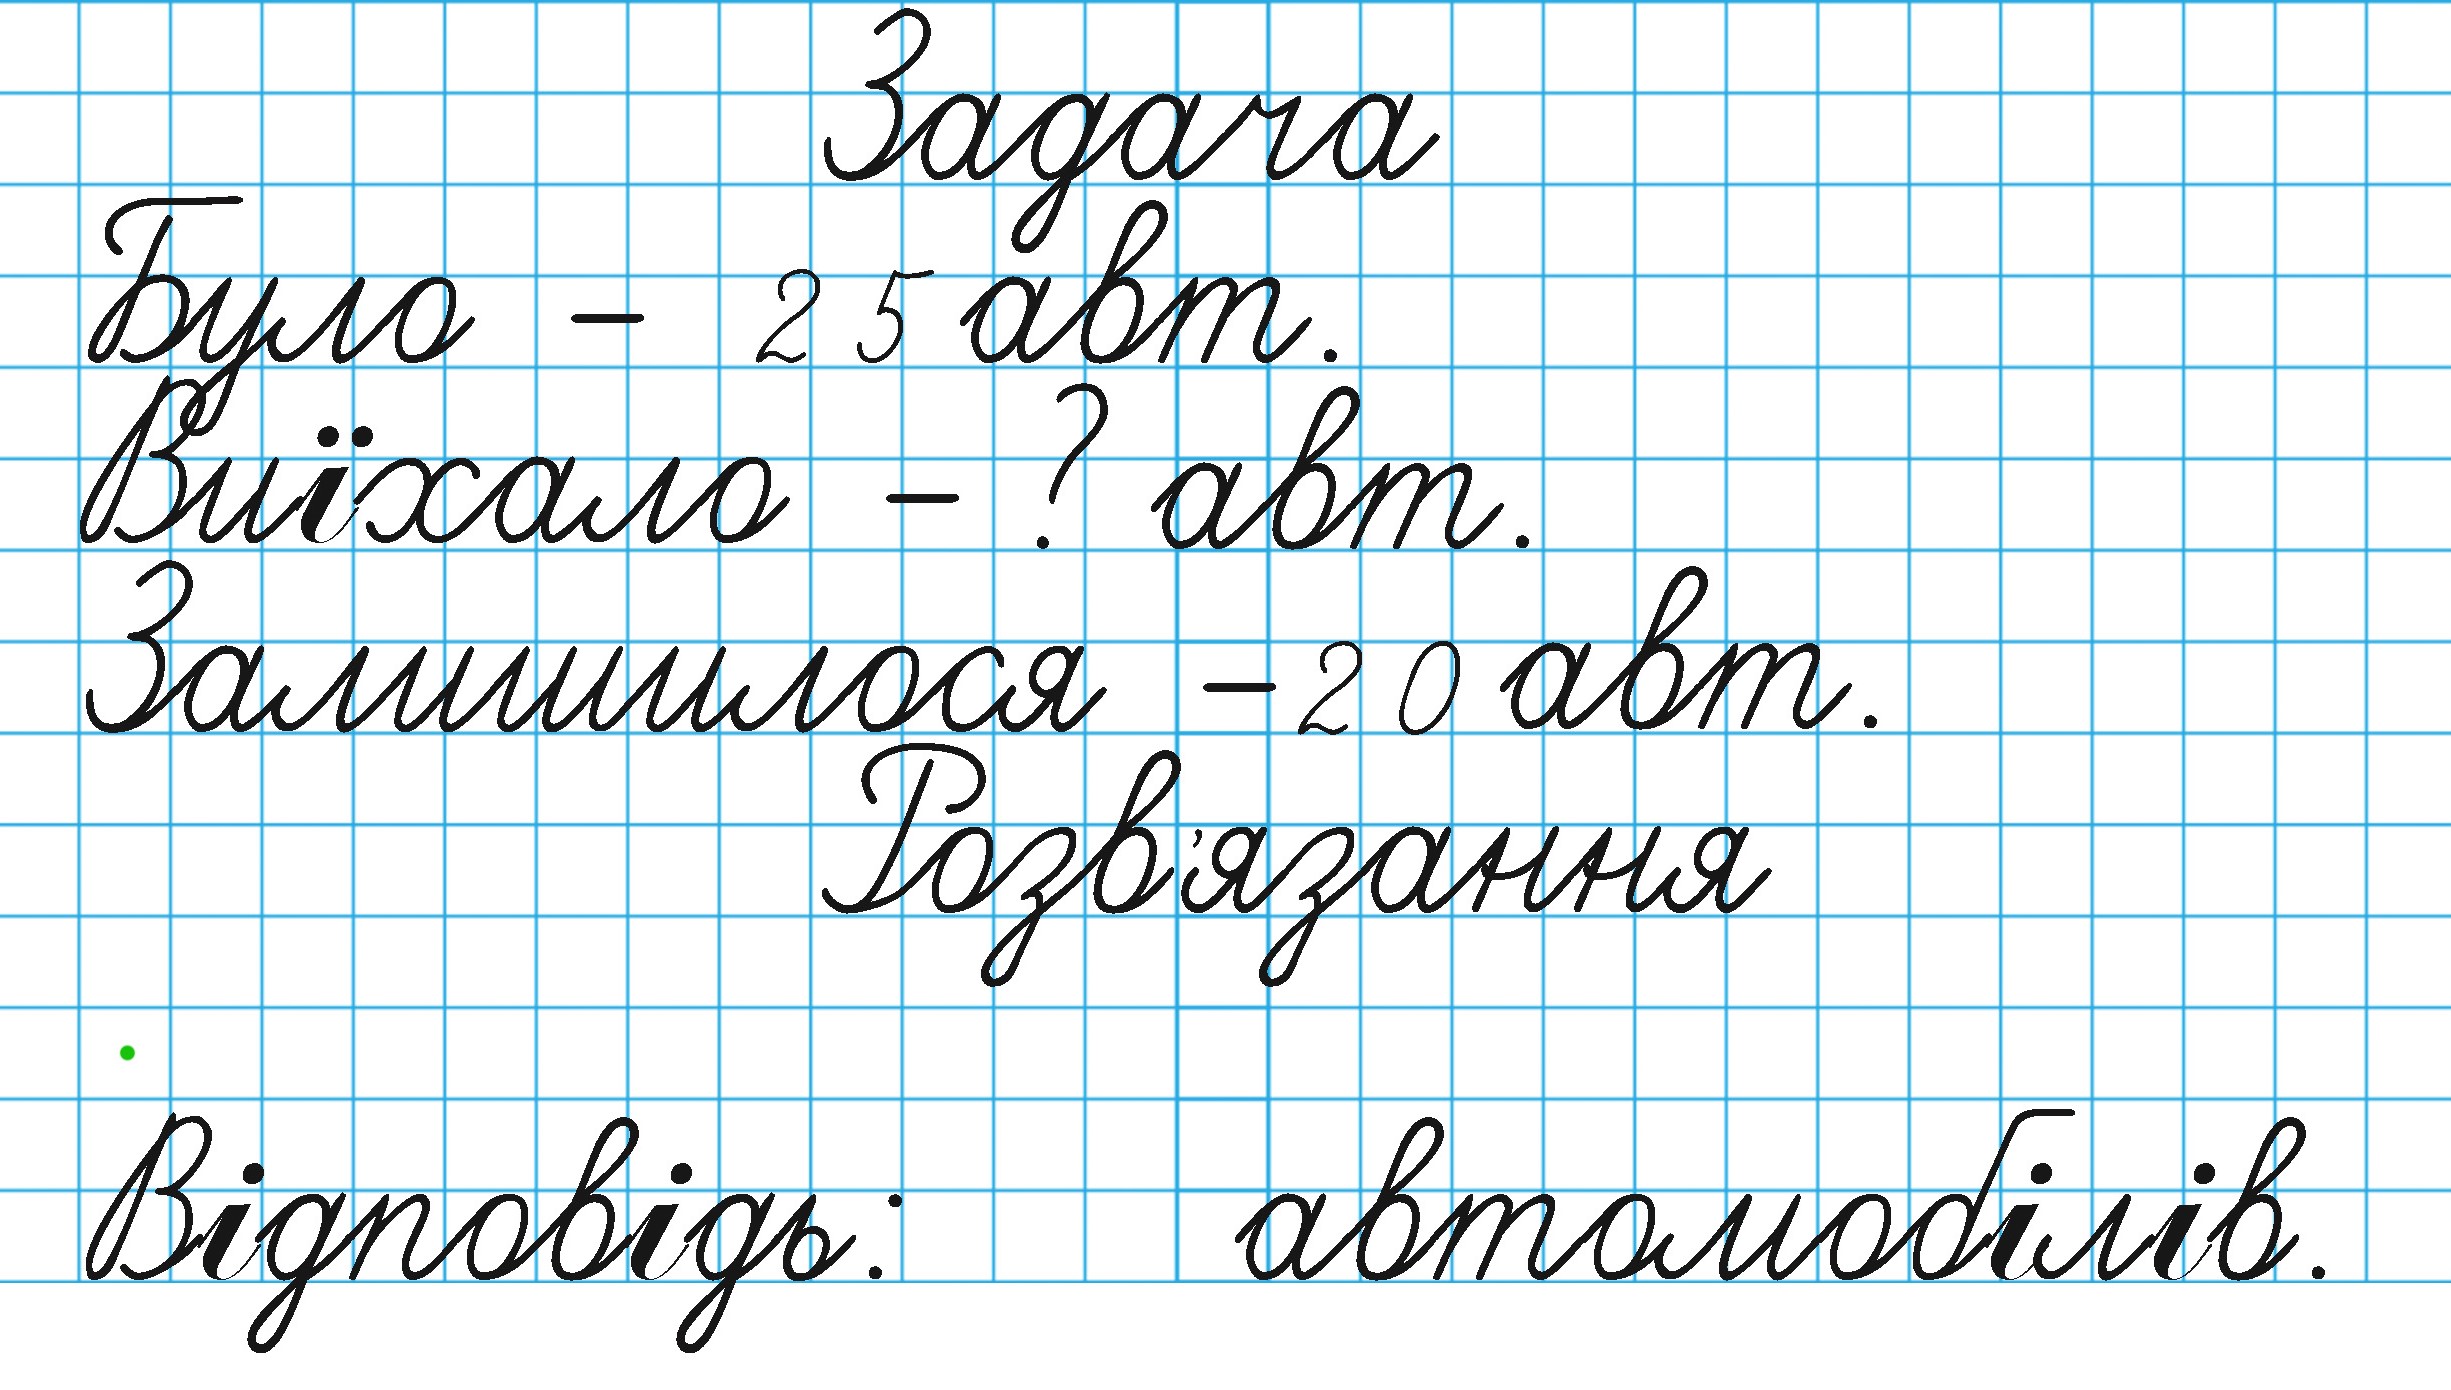 Задача
Було – 25 авт.
Виїхало – ? авт.
Залишилося – 20 авт.
Розв'язання
Відповідь: автомобілів.